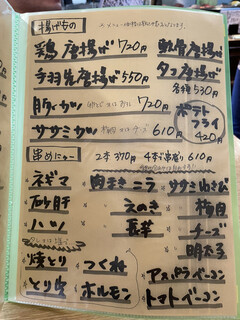 揚げもの
鶏唐揚げ 720円
軟骨唐揚げ
手羽先唐揚げ 550円
タコ唐揚げ
各種530円
720円
ポテト
フライ
420円
ササミカツ 610円
串めにゅー
2本 370円 4本 610円
ネギマ
肉まき ニラ
ササミわさび
砂肝
えのき
梅肉
ハツ
チーズ
明太子
焼とり
つくね
アスパラベーコン
とり皮
ホルモン
トマトベーコン